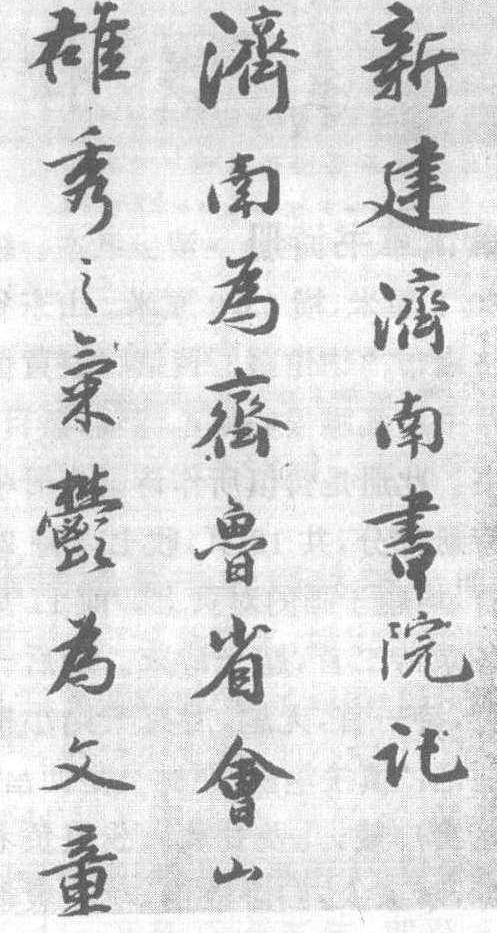 新建濟南書院記
濟南為齊魯省會山
雄秀之氣鬱為文章